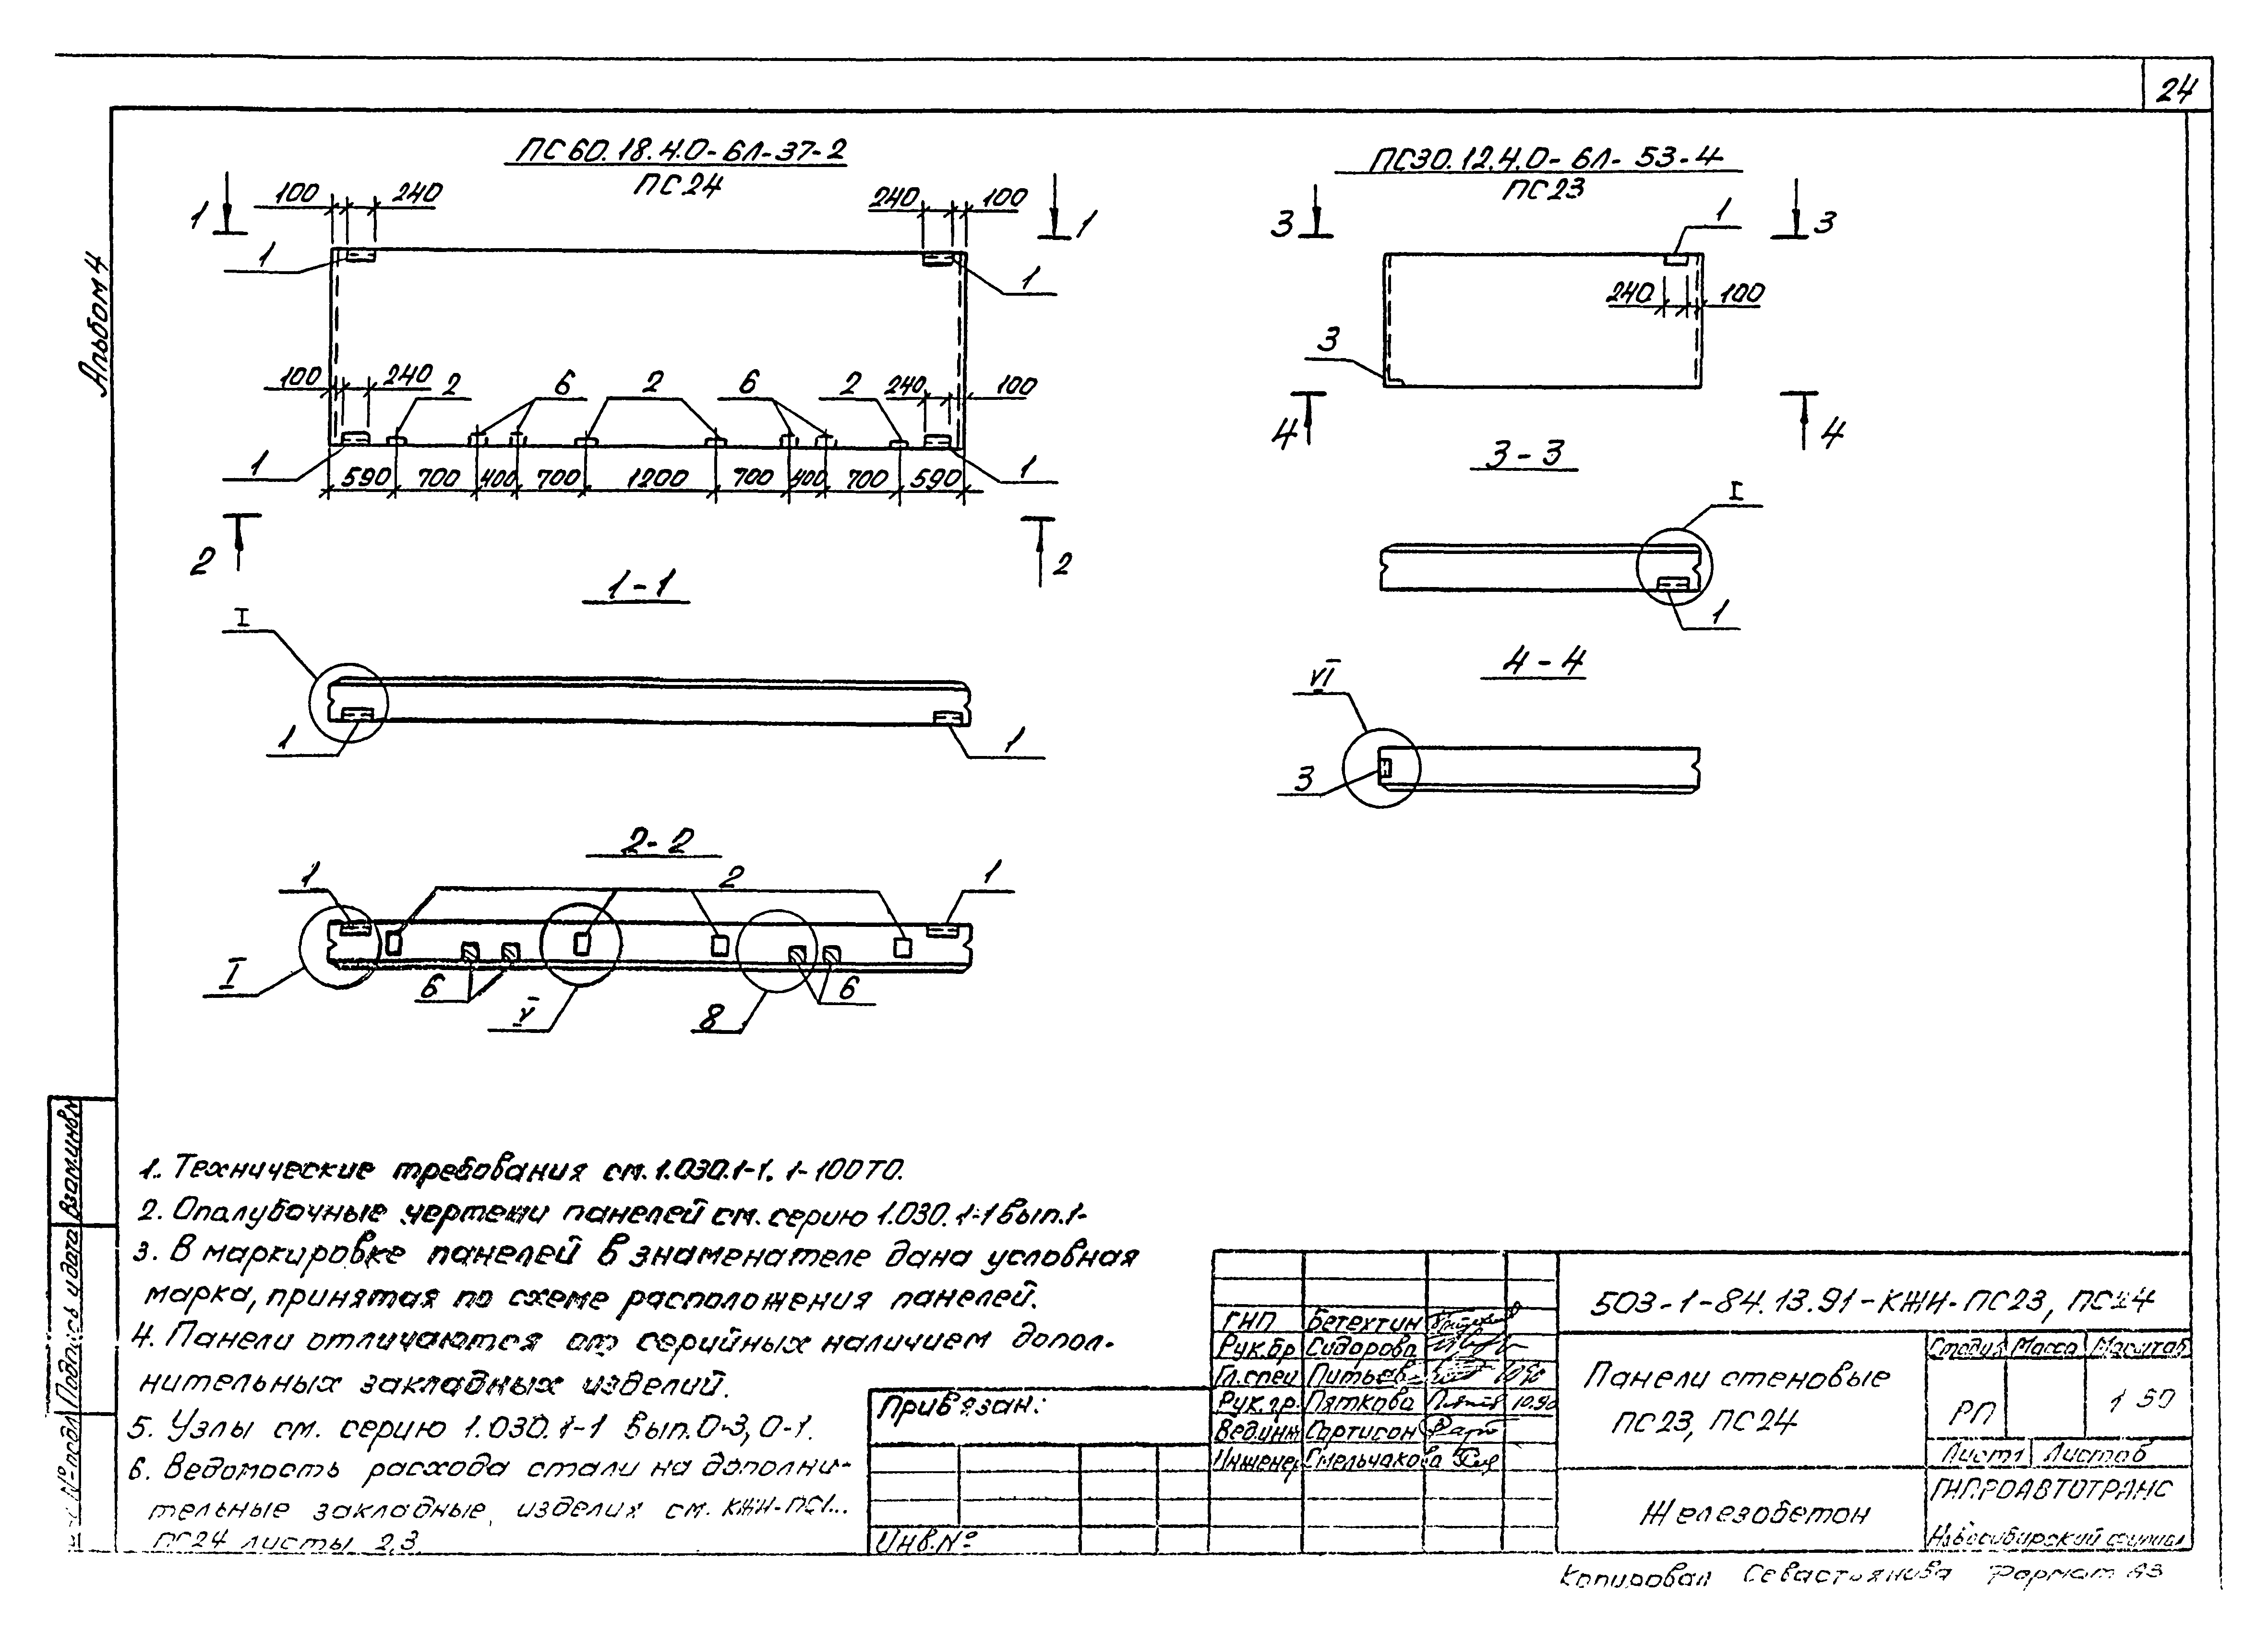 24
Альбом 4
ПС60.18.4.0-6Л-37-2
ПС24
100 240 240 100
1 1
1 1
100 240 2 6 2 6 2 240 100
1 1
590 700 400 700 1200 700 400 700 590
2 2
1-1
I
1 1
2-2
1 2 1
I 6 V 8 6
ПС30.12.4.0-6Л-53-4
ПС23
3 1 3
240 100
3
4 4
3-3
I
1
4-4
VI
3
1. Технические требования см. 1.030.1-1. 1-100ТО.
2. Опалубочные чертежи панелей см. серию 1.030.1-1 вып.1-
3. В маркировке панелей в знаменателе дана условная
марка, принятая по схеме расположения панелей.
4. Панели отличаются от серийных наличием допол-
нительных закладных изделий.
5. Узлы см. серию 1.030.1-1 вып.0-3, 0-1.
6. Ведомость расхода стали на дополни-
тельные закладные изделия см. КЖИ-ПС1...
ПС24 листы 2,3.
Взам.инв.№
Подпись и дата
№ подл
Привязан:
Инв.№
ГИП Бетехтин
Рук.бр Сидорова
Гл.спец Питьев
Рук.гр. Пяткова 10.90
Вед.инж Сартисон
Инженер Смельчакова
503-1-84.13.91-КЖИ-ПС23, ПС24
Панели стеновые
ПС23, ПС24
Стадия Масса Масштаб
РП 1 50
Лист 1 Листов
Железобетон
ГИПРОАВТОТРАНС
Новосибирский филиал
Копировал Севастьянова Формат А3